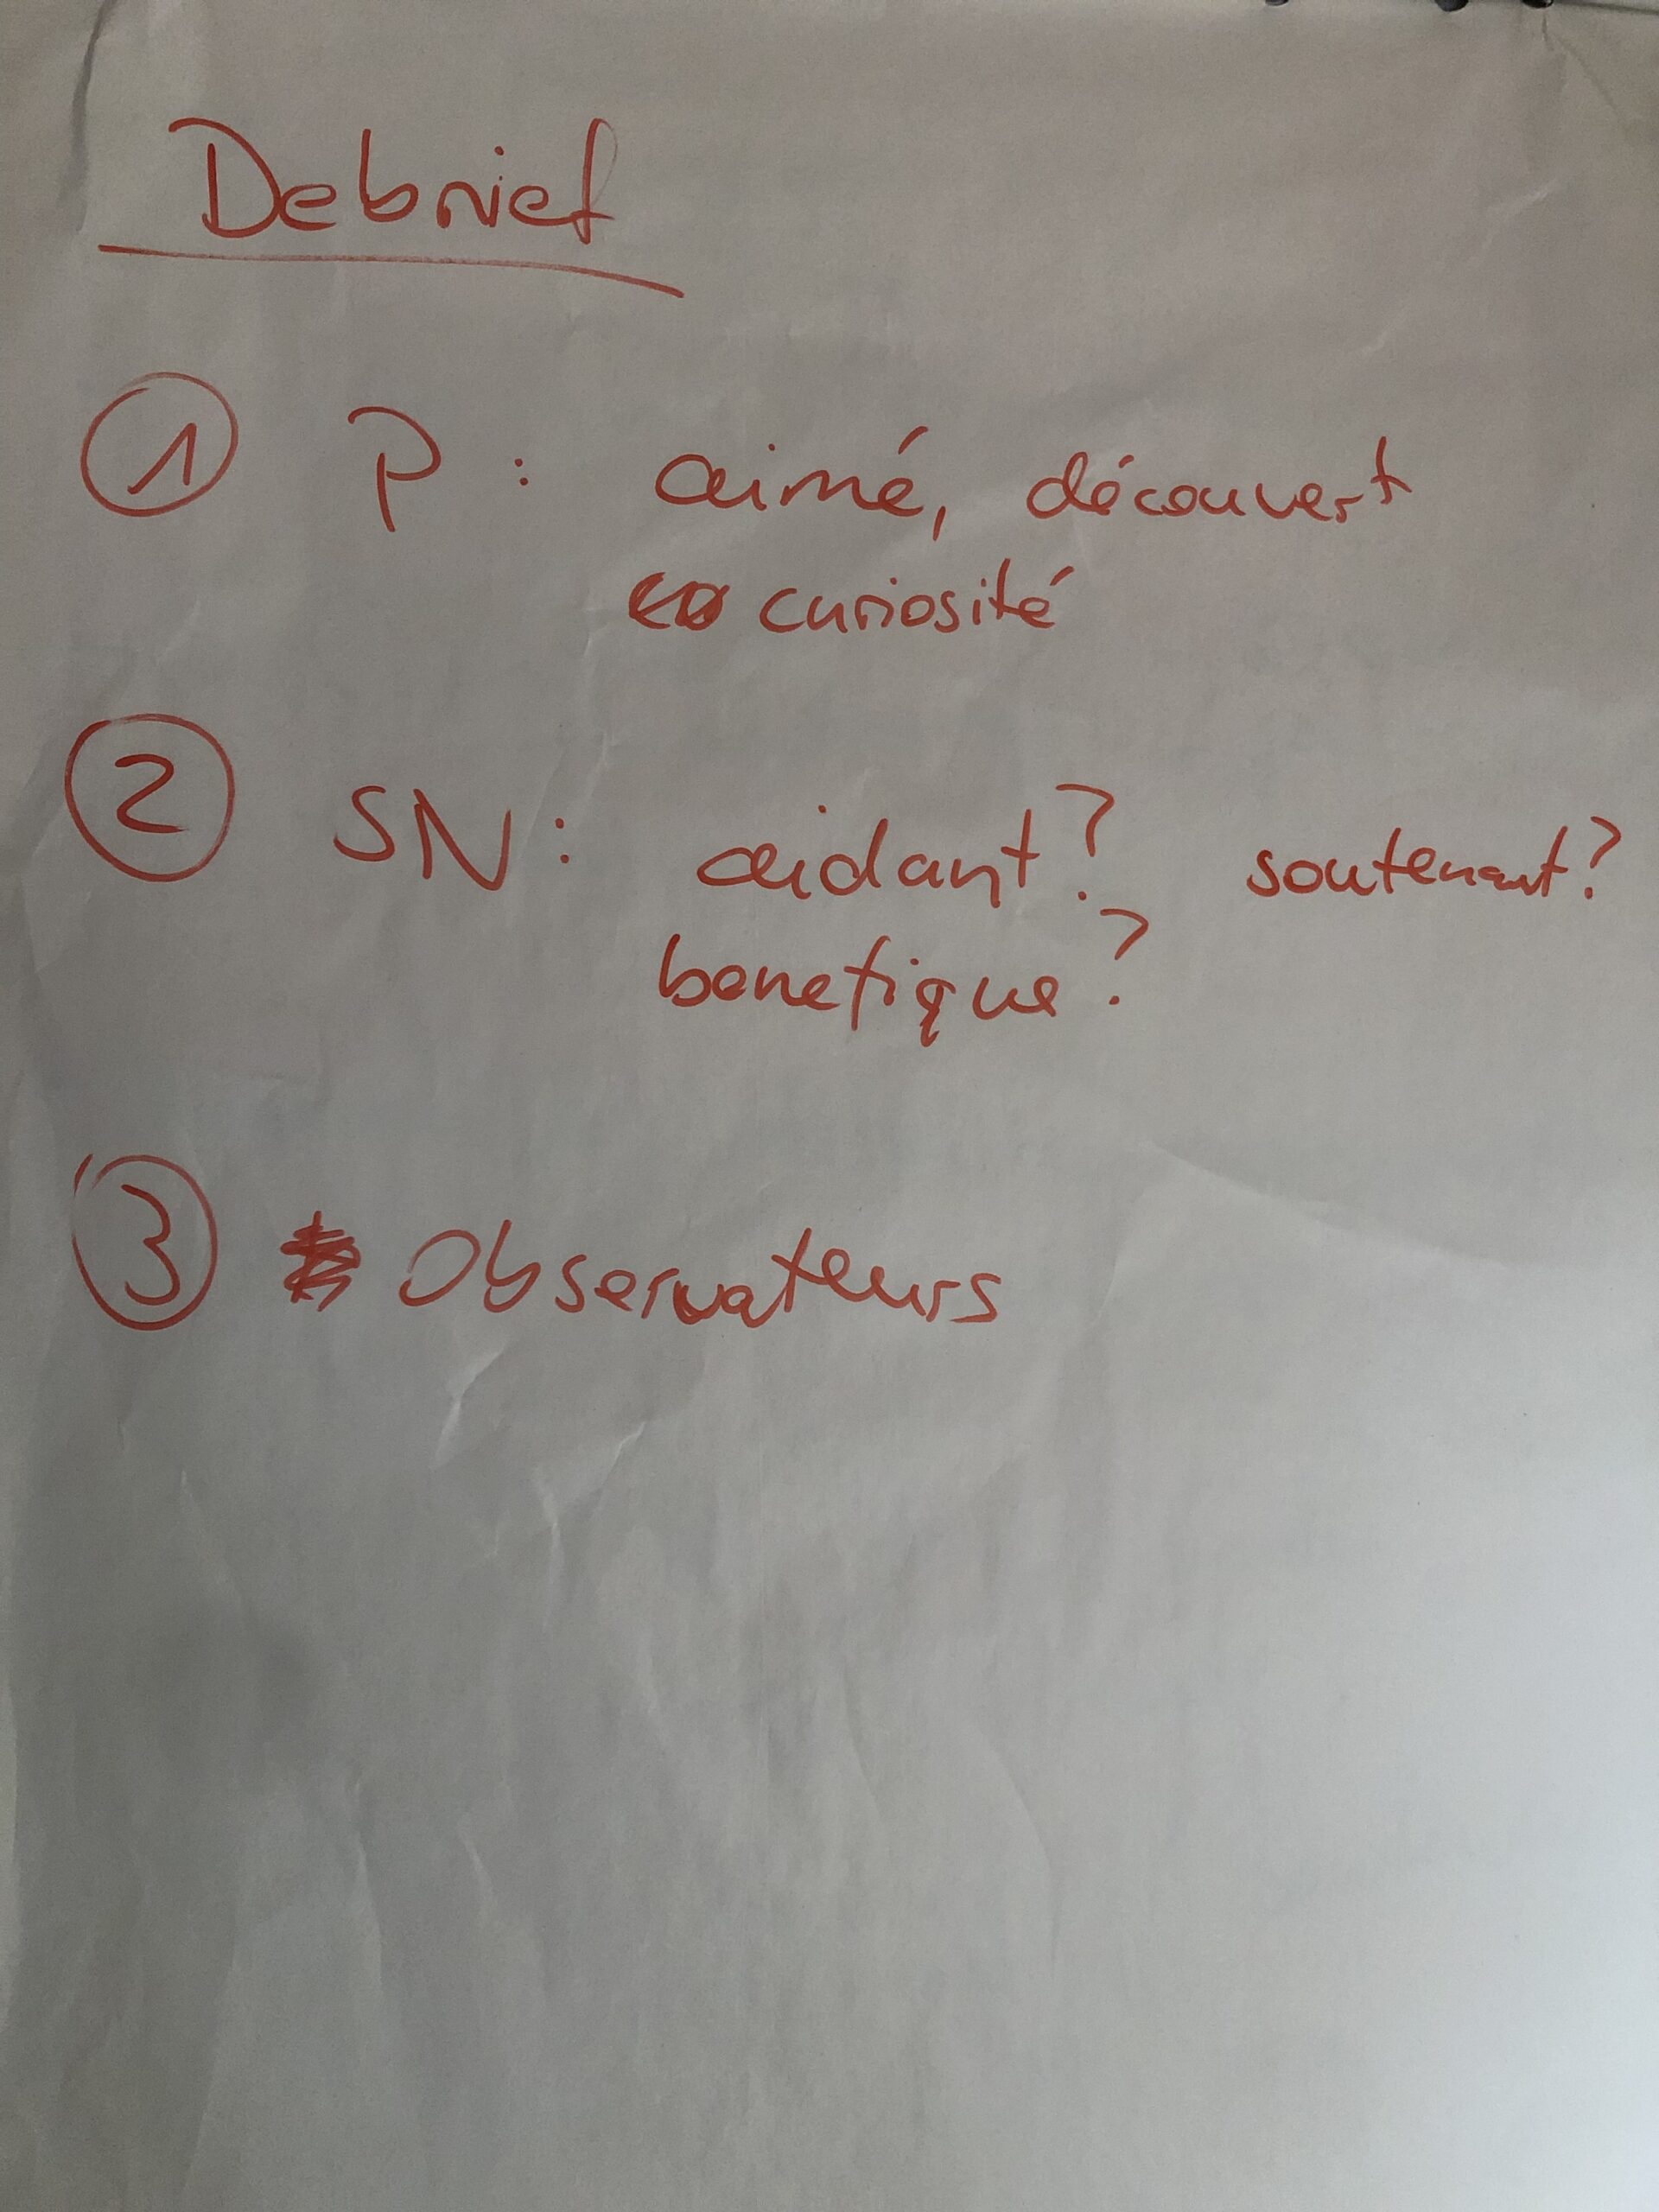 Debrief
1 P : aimé, découvert
curiosité
2 SN : aidant ? soutenant ?
benefique ?
3 Observateurs